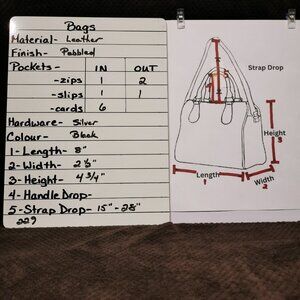 Bags
Material- Leather
Finish- Pebbled
Pockets- IN OUT
-zips 1 2
-slips 1 1
-cards 6
Hardware- Silver
Colour- Black
1-Length- 8"
2-Width- 2 1/2"
3-Height- 4 3/4"
4-Handle Drop-
5-Strap Drop- 15" - 28"
229
Strap Drop
5
4
Height
3
Length
1
Width
2